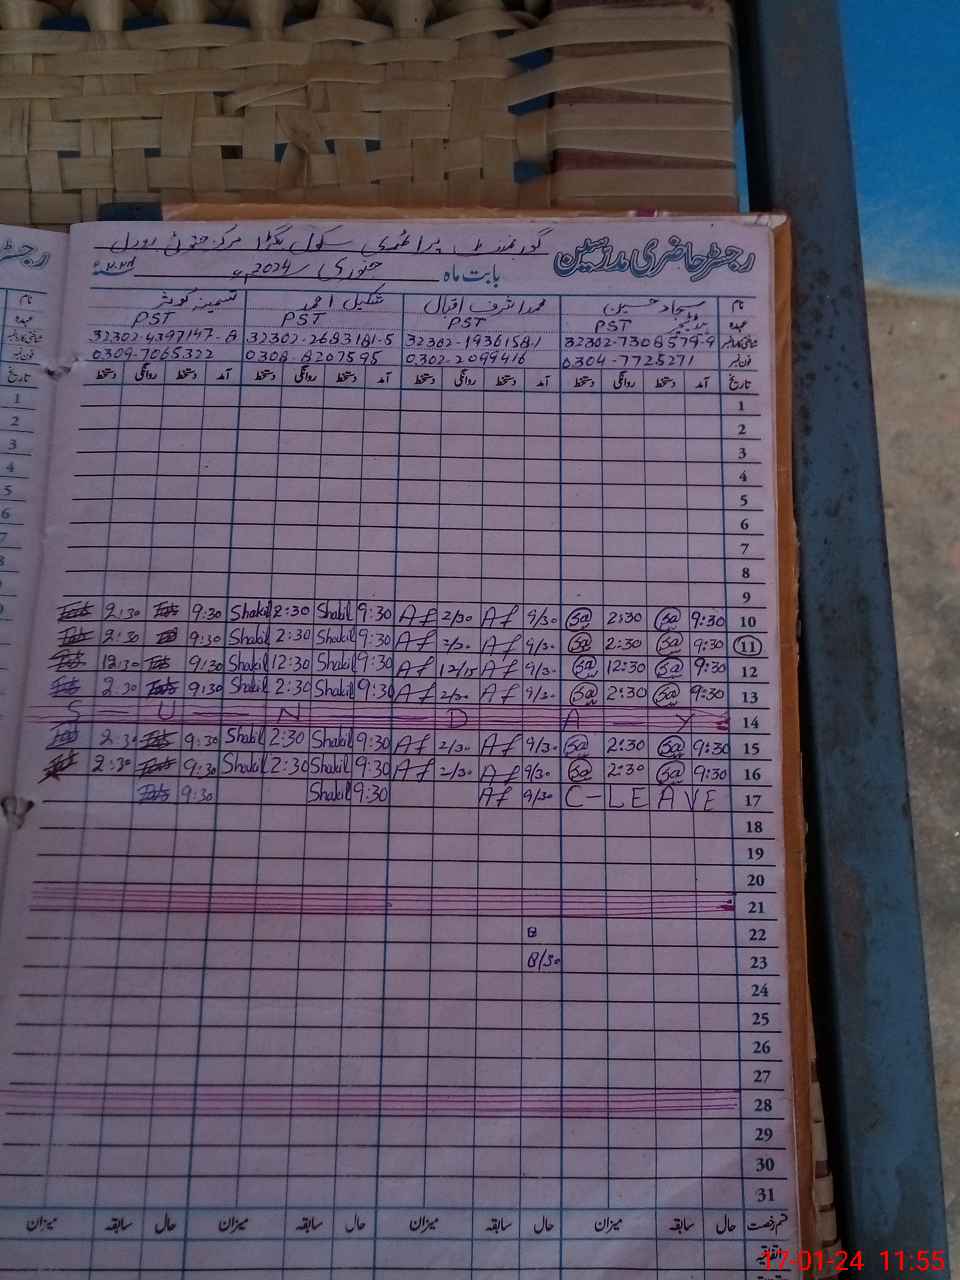 رجسٹر حاضری مدرسین گورنمنٹ پرائمری سکول مرکز جتوئی رورل
بابت ماہ جنوری 2024ء
نام سجاد حسین محمد اشرف اقبال شکیل احمد تسمینہ کوثر
عہدہ PST PST PST PST
32302-7308579-9 32302-19361581 32302-2683181-5 32302-4397147-8
فون نمبر 0304-7725271 0302-2099416 0308-8207595 0309-7065322
تاریخ آمد دستخط روانگی دستخط آمد دستخط روانگی دستخط آمد دستخط روانگی دستخط آمد دستخط روانگی دستخط
1
2
3
4
5
6
7
8
9
10 9:30 Sa 2:30 Sa 9/30 Af 2/30 Af 9:30 Shakil 2:30 Shakil 9:30 2:30
11 9:30 Sa 2:30 Sa 9/30 Af 2/30 Af 9:30 Shakil 2:30 Shakil 9:30 2:30
12 9:30 Sa 12:30 Sa 9/30 Af 12/15 Af 9:30 Shakil 12:30 Shakil 9:30 12:30
13 9:30 Sa 2:30 Sa 9/30 Af 2/30 Af 9:30 Shakil 2:30 Shakil 9:30 2:30
14 S — U — N — D A — Y
15 9:30 Sa 2:30 Sa 9/30 Af 2/30 Af 9:30 Shakil 2:30 Shakil 9:30 2:30
16 9:30 Sa 2:30 Sa 9/30 Af 2/30 Af 9:30 Shakil 2:30 Shakil 9:30 2:30
17 C-LEAVE 9/30 Af 9:30 Shakil 9:30
18
19
20
21
22 8
23 8/30
24
25
26
27
28
29
30
31
قسم رخصت حال سابقہ میزان حال سابقہ میزان حال سابقہ میزان حال سابقہ میزان
اتفاقیہ
17-01-24 11:55